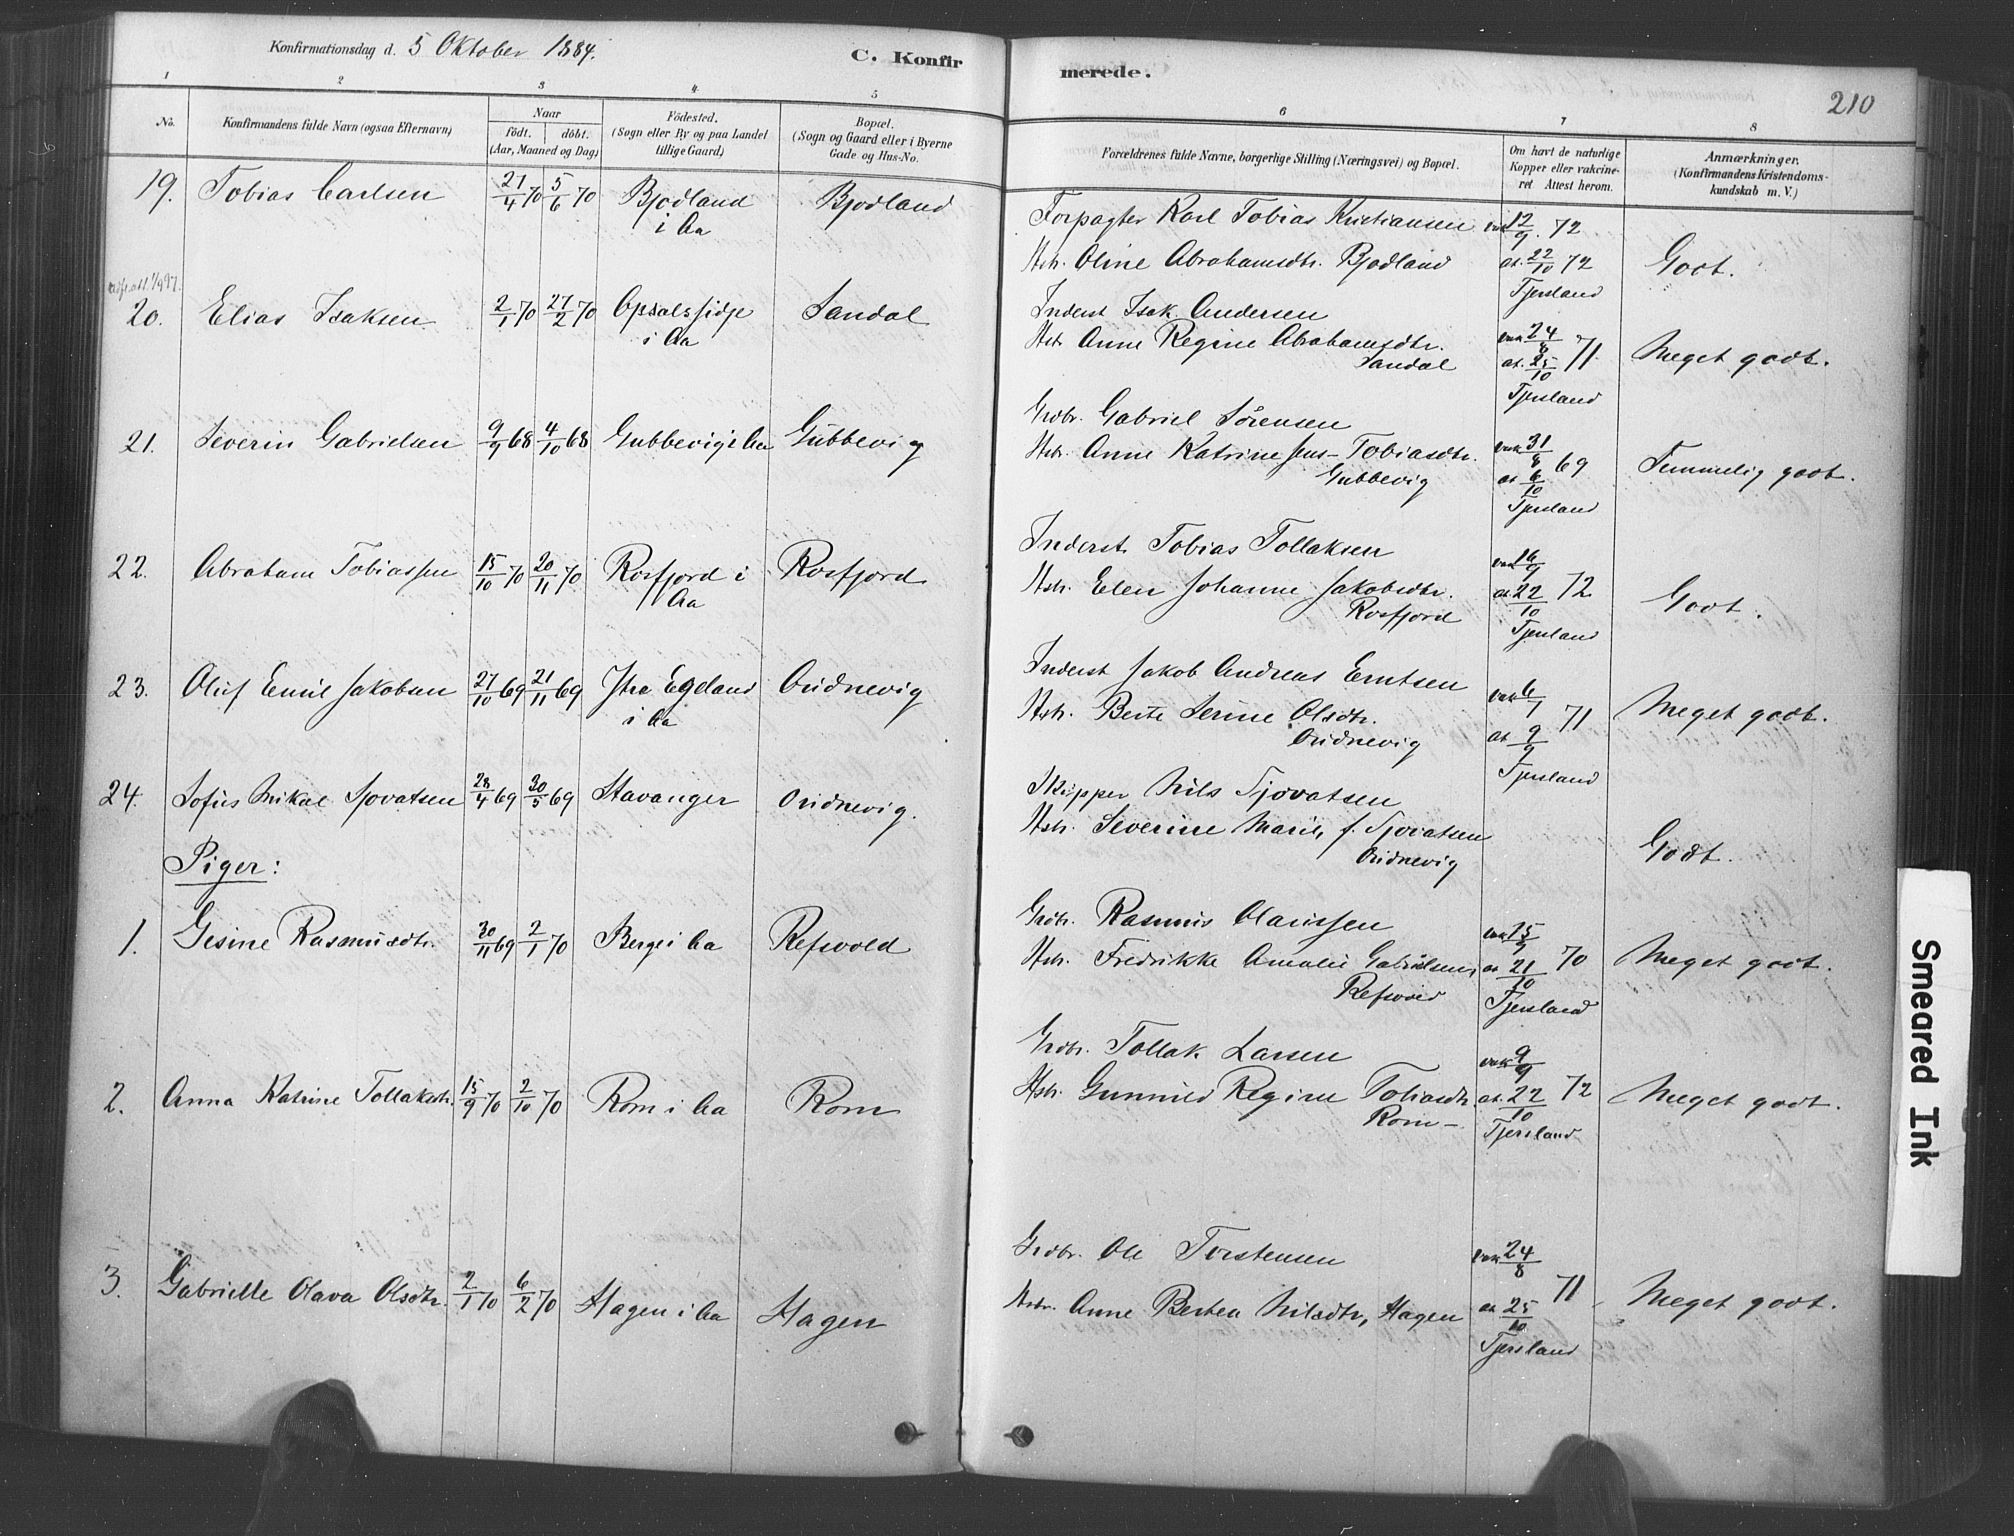 Konfirmationsdag d. 5 Oktober 1884.
C. Konfirmerede.
210
1 2 3 4 5 6 7 8
No.
Konfirmandens fulde Navn (ogsaa Efternavn)
Naar
födt. döbt.
(Aar, Maaned og Dag)
Födested.
(Sogn eller By og paa Landet
tillige Gaard)
Bopæl.
(Sogn og Gaard eller i Byerne
Gade og Hus-No.
Forældrenes fulde Navne, borgerlige Stilling (Næringsvei) og Bopæl.
Om havt de naturlige
Kopper eller vakcine-
ret Attest herom.
Anmærkninger.
(Konfirmandens Kristendoms-
kundskab m. V.)
19. Tobias Carlsen 21/4 70 5/6 70 Bjodland i Aa Bjodland
Forpagter Karl Tobias Kristiansen vak 12/9. 72
Hstr. Oline Abrahamsdtr. Bjodland at. 22/10 72 Godt.
Tjersland
20. Elias Isaksen 2/1 70 27/2 70 Opsalsfidje i Aa Sandal
Inderst Isak Andersen
Hstr Anne Regine Abrahamsdtr. vak 24/8 71 Meget godt.
Sandal at. 25/10
Tjersland
21. Severin Gabrielsen 9/9 68 4/10 68 Gubbevig i Aa Gubbevig
Grdbr. Gabriel Sörensen
Hstr. Anne Katrine Tobiasdtr. vak 31/8 69 Temmelig godt.
Gubbevig at 6/10
Tjersland
22. Abraham Tobiassen 15/10 70 20/11 70 Rosfjord i Aa Rosfjord
Inderst Tobias Tollaksen vak 16/9
Hstr. Elen Johanne Jakobsdtr. at 22/10 72 Godt.
Rosfjord
Tjersland
23. Oluf Emil Jakobsen 27/10 69 21/11 69 Ytre Egeland i Aa Oudnevig
Inderst Jakob Andreas Erntsen vak 6/7
Hstr. Berte Serine Olsdtr. 71 Meget godt.
Oudnevig at 2/9
Tjersland
24. Sofus Mikal Sjovatsen 28/4 69 30/5 69 Stavanger Oudnevig.
Skipper Nils Sjovatsen
Hstr. Severine Marie, f. Sjovatsen
Oudnevig Godt.
Piger:
1. Gesine Rasmusdtr. 30/11 69 2/1 70 Berge i Aa Refsvold
Grdbr. Rasmus Olaussen vak 15/9
Hstr. Fredrikke Amalie Gabrielsen, at 21/10 70 Meget godt.
Refsvold
Tjersland
2. Anna Katrine Tollaksdtr. 15/9 70 2/10 70 Rom i Aa Rom
Grdbr. Tollak Larsen vak 9/9
Hstr. Gunnild Regine Tobiasdtr. at. 22/10 72 Meget godt.
Rom –
Tjersland
3. Gabrielle Olava Olsdtr. 2/1 70 6/2 70 Hagen i Aa Hagen
Grdbr. Ole Torstensen vak 24/8
Hstr. Anne Bertea Nilsdtr, Hagen at 25/10 71 Meget godt.
Tjersland
Smeared Ink